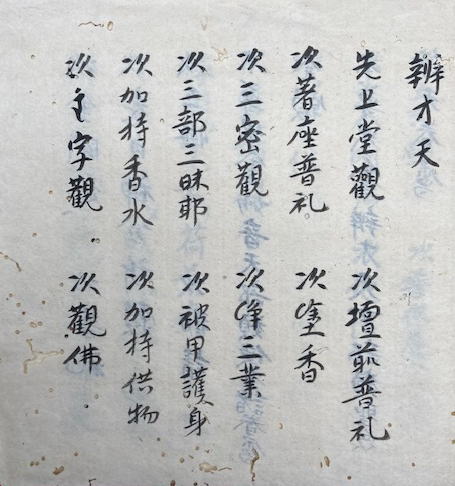 辨才天
先上堂觀 次壇前普礼
次著座普礼 次塗香
次三密觀 次净三業
次三部三昧耶 次被甲護身
次加持香水 次加持供物
次字觀 次觀佛